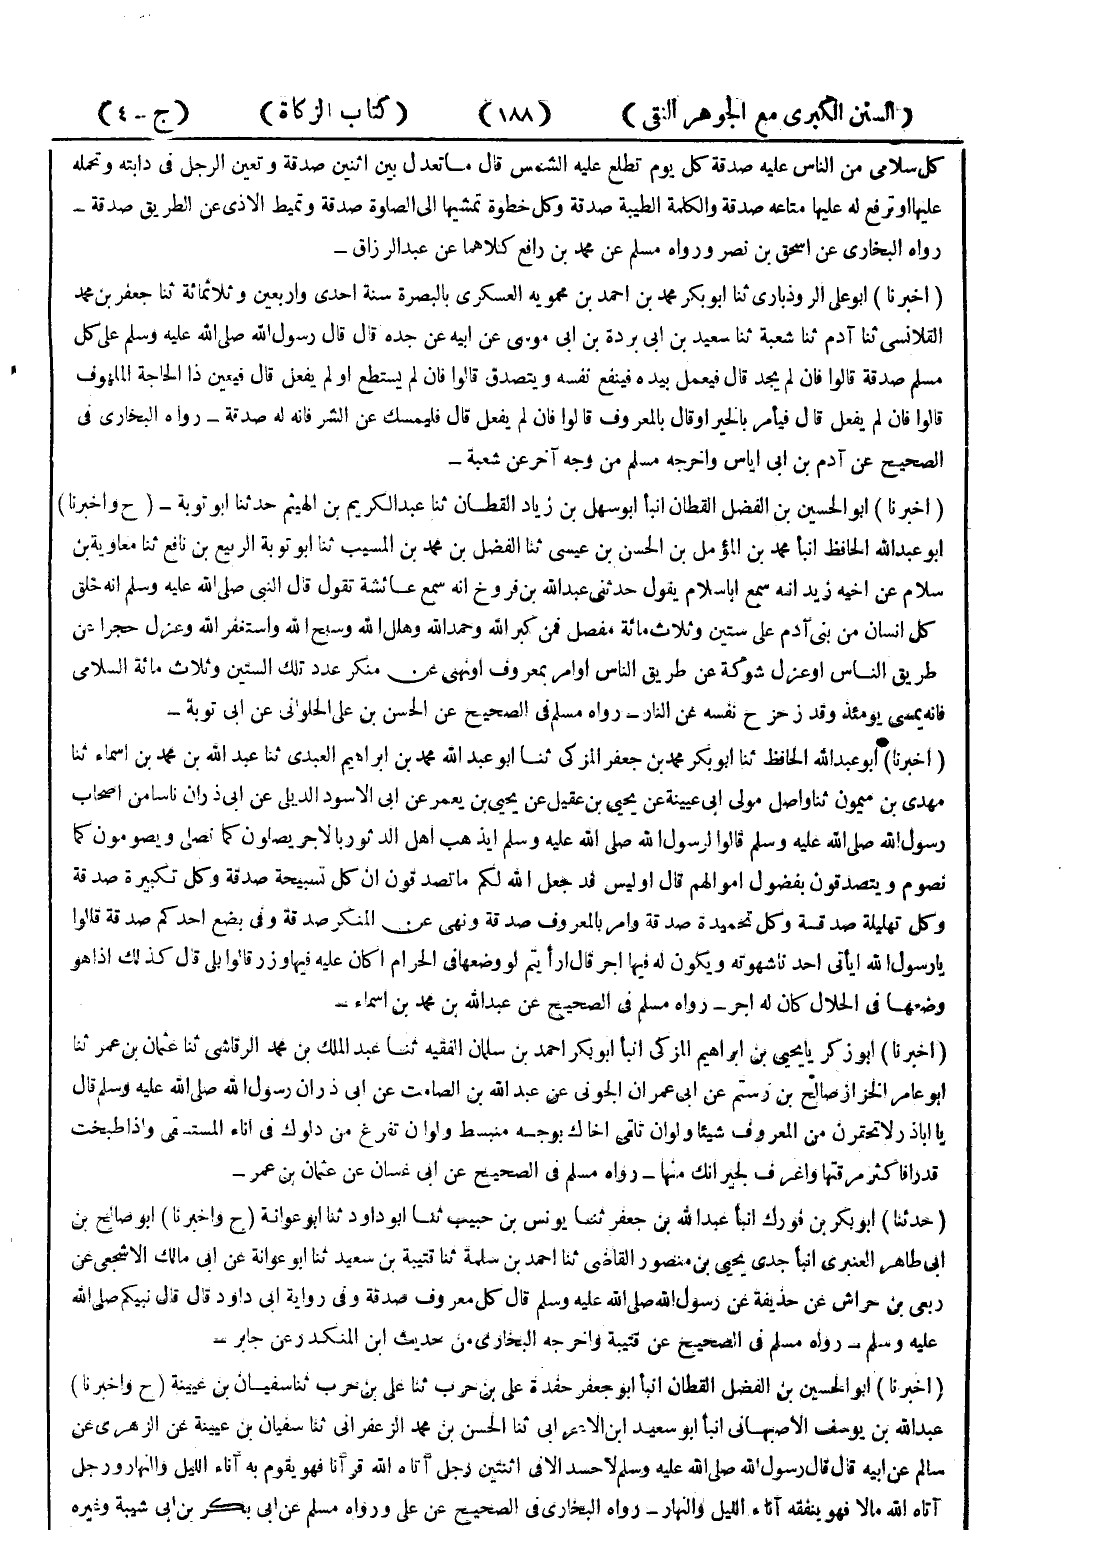 (السنن الكبرى مع الجوهر النقى) (١٨٨) (كتاب الزكاة) (ج - ٤)
كل سلامى من الناس عليه صدقة كل يوم تطلع عليه الشمس قال ما تعدل بين اثنين صدقة وتعين الرجل فى دابته وتحمله
عليها او ترفع له عليها متاعه صدقة والكلمة الطيبة صدقة وكل خطوة تمشيها الى الصلوة صدقة وتميط الاذى عن الطريق صدقة -
رواه البخارى عن اسحق بن نصر ورواه مسلم عن محمد بن رافع كلاهما عن عبد الرزاق -
(اخبرنا) ابو على الروذبارى ثنا ابو بكر محمد بن احمد بن محمويه العسكرى بالبصرة سنة احدى واربعين وثلاثمائة ثنا جعفر بن محمد
القلانسى ثنا آدم ثنا شعبة ثنا سعيد بن ابى بردة بن ابى موسى عن ابيه عن جده قال قال رسول الله صلى الله عليه وسلم على كل
مسلم صدقة قالوا فان لم يجد قال فيعمل بيده فينفع نفسه ويتصدق قالوا فان لم يستطع او لم يفعل قال فيعين ذا الحاجة الملهوف
قالوا فان لم يفعل قال فيأمر بالخير او قال بالمعروف قالوا فان لم يفعل قال فليمسك عن الشر فانه له صدقة - رواه البخارى فى
الصحيح عن آدم بن ابى اياس واخرجه مسلم من وجه آخر عن شعبة -
(اخبرنا) ابو الحسين بن الفضل القطان انبأ ابو سهل بن زياد القطان ثنا عبد الكريم بن الهيثم حدثنا ابو توبة - (ح واخبرنا)
ابو عبد الله الحافظ انبأ محمد بن المؤمل بن الحسن بن عيسى ثنا الفضل بن محمد بن المسيب ثنا ابو توبة الربيع بن نافع ثنا معاوية بن
سلام عن اخيه زيد انه سمع اباسلام يقول حدثنى عبد الله بن فروخ انه سمع عائشة تقول قال النبى صلى الله عليه وسلم انه خلق
كل انسان من بنى آدم على ستين وثلاث مائة مفصل فمن كبر الله وحمد الله وهلل الله وسبح الله واستغفر الله وعزل حجرا عن
طريق الناس او عزل شوكة عن طريق الناس او امر بمعروف او نهى عن منكر عدد تلك الستين وثلاث مائة السلامى
فانه يمسى يومئذ وقد زحزح نفسه عن النار - رواه مسلم فى الصحيح عن الحسن بن على الحلوانى عن ابى توبة -
(اخبرنا) أبو عبد الله الحافظ ثنا ابو بكر محمد بن جعفر المزكى ثنا ابو عبد الله محمد بن ابراهيم العبدى ثنا عبد الله بن محمد بن اسماء ثنا
مهدى بن ميمون ثنا واصل مولى ابى عيينة عن يحيى بن عقيل عن يحيى بن يعمر عن ابى الاسود الديلى عن ابى ذر ان ناسا من اصحاب
رسول الله صلى الله عليه وسلم قالوا لرسول الله صلى الله عليه وسلم ايذهب اهل الدثور بالاجر يصلون كما نصلى ويصومون كما
نصوم ويتصدقون بفضول اموالهم قال اوليس قد جعل الله لكم ما تصدقون ان كل تسبيحة صدقة وكل تكبيرة صدقة
وكل تهليلة صدقة وكل تحميدة صدقة وامر بالمعروف صدقة ونهى عن المنكر صدقة وفى بضع احدكم صدقة قالوا
يا رسول الله ايأتى احدنا شهوته ويكون له فيها اجر قال ارأيتم لو وضعها فى الحرام اكان عليه فيها وزر قالوا بلى قال كذلك اذا هو
وضعها فى الحلال كان له اجر - رواه مسلم فى الصحيح عن عبد الله بن محمد بن اسماء -
(اخبرنا) ابو زكريا يحيى بن ابراهيم المزكى انبأ ابو بكر احمد بن سلمان الفقيه ثنا عبد الملك بن محمد الرقاشى ثنا عثمان بن عمر ثنا
ابو عامر الخزاز صالح بن رستم عن ابى عمران الجونى عن عبد الله بن الصامت عن ابى ذر ان رسول الله صلى الله عليه وسلم قال
يا اباذر لا تحقرن من المعروف شيئا ولو ان تلقى اخاك بوجه منبسط ولو ان تفرغ من دلوك فى اناء المستسقى واذا طبخت
قدرا فاكثر مرقتها واغرف لجيرانك منها - رواه مسلم فى الصحيح عن ابى غسان عن عثمان بن عمر -
(حدثنا) ابو بكر بن فورك انبأ عبد الله بن جعفر ثنا يونس بن حبيب ثنا ابو داود ثنا ابو عوانة (ح واخبرنا) ابو صالح بن
ابى طاهر العنبرى انبأ جدى يحيى بن منصور القاضى ثنا احمد بن سلمة ثنا قتيبة بن سعيد ثنا ابو عوانة عن ابى مالك الاشجعى عن
ربعى بن حراش عن حذيفة عن رسول الله صلى الله عليه وسلم قال كل معروف صدقة وفى رواية ابى داود قال قال نبيكم صلى الله
عليه وسلم - رواه مسلم فى الصحيح عن قتيبة واخرجه البخارى من حديث ابن المنكدر عن جابر -
(اخبرنا) ابو الحسين بن الفضل القطان انبأ ابو جعفر حفدة على بن حرب ثنا على بن حرب ثنا سفيان بن عيينة (ح واخبرنا)
عبد الله بن يوسف الاصبهانى انبأ ابو سعيد ابن الاعرابى ثنا الحسن بن محمد الزعفرانى ثنا سفيان بن عيينة عن الزهرى عن
سالم عن ابيه قال قال رسول الله صلى الله عليه وسلم لا حسد الا فى اثنتين رجل آتاه الله قرآنا فهو يقوم به آناء الليل والنهار ورجل
آتاه الله مالا فهو ينفقه آناء الليل والنهار - رواه البخارى فى الصحيح عن على ورواه مسلم عن ابى بكر بن ابى شيبة وغيره